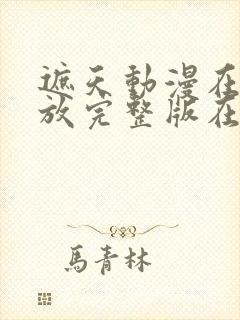 遮天動漫在
放完整版在
馬青林